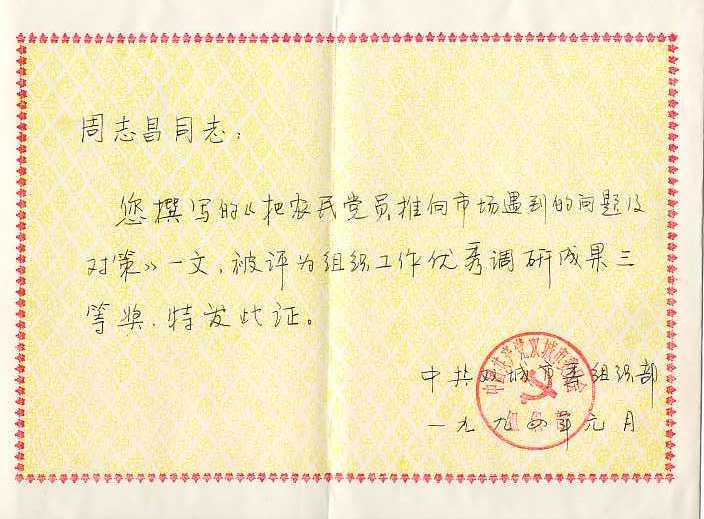 周志昌同志：
您撰写的《把农民党员推向市场遇到的问题及
对策》一文，被评为组织工作优秀调研成果三
等奖，特发此证。
中共双城市委组织部
一九九四年元月
中国共产党双城市委员会
组织部